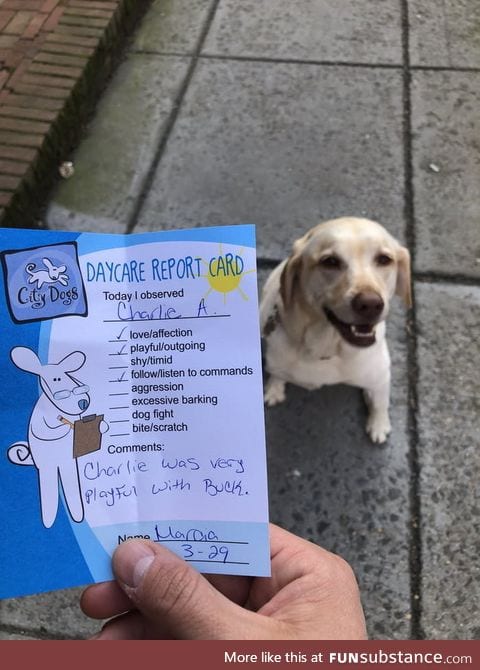 City Dogs
DAYCARE REPORT CARD
Today I observed
Charlie A.
✓ love/affection
✓ playful/outgoing
shy/timid
✓ follow/listen to commands
aggression
excessive barking
dog fight
bite/scratch
Comments:
Charlie was very
playful with Buck.
Name Marcia
3-29
More like this at FUNsubstance.com